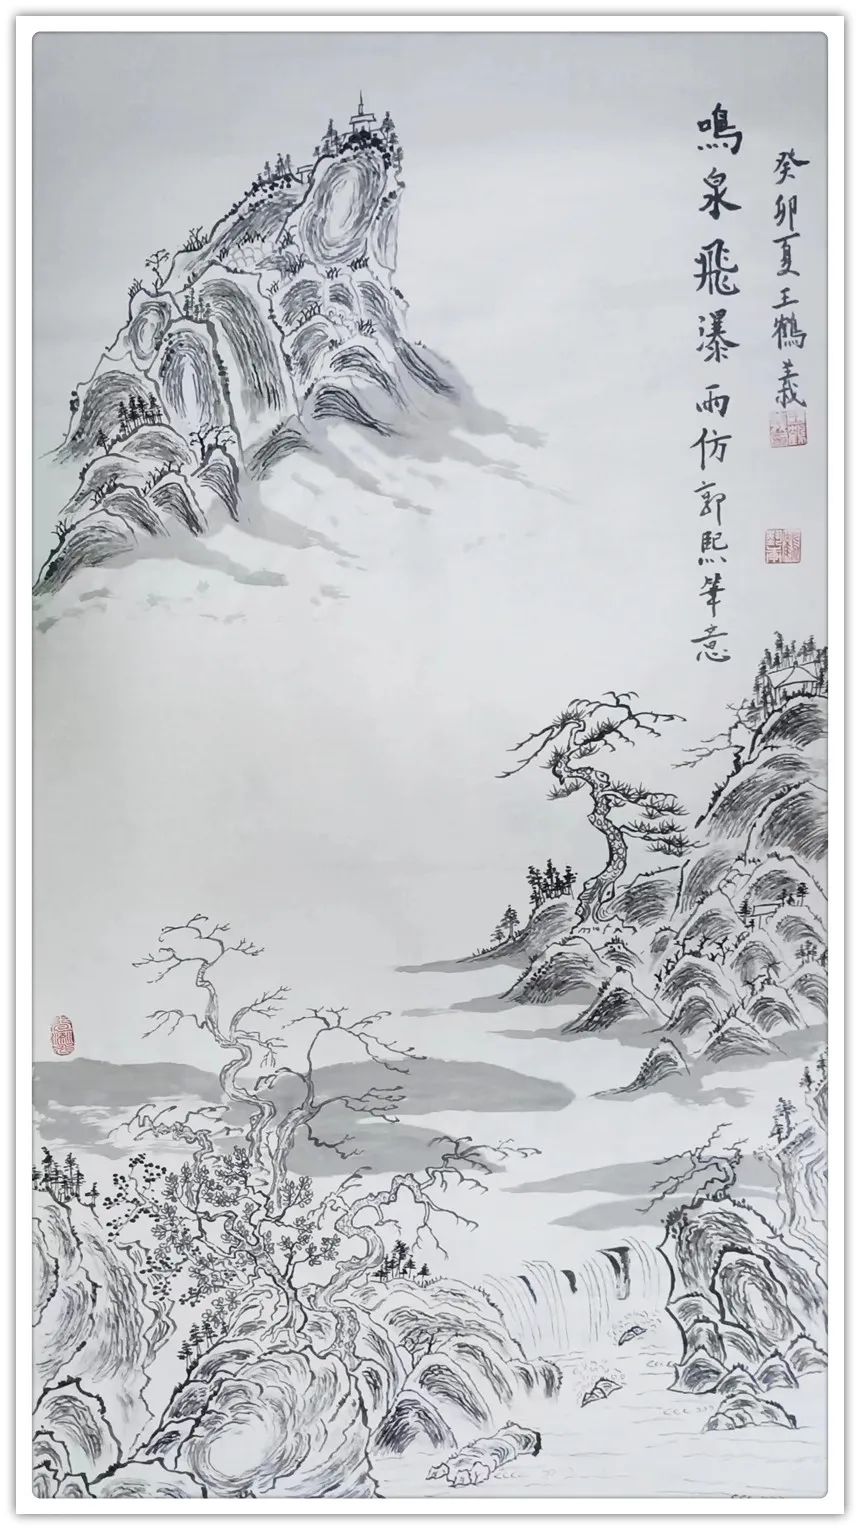 鳴泉飛瀑雨仿郭熙筆意
癸卯夏王鶴義